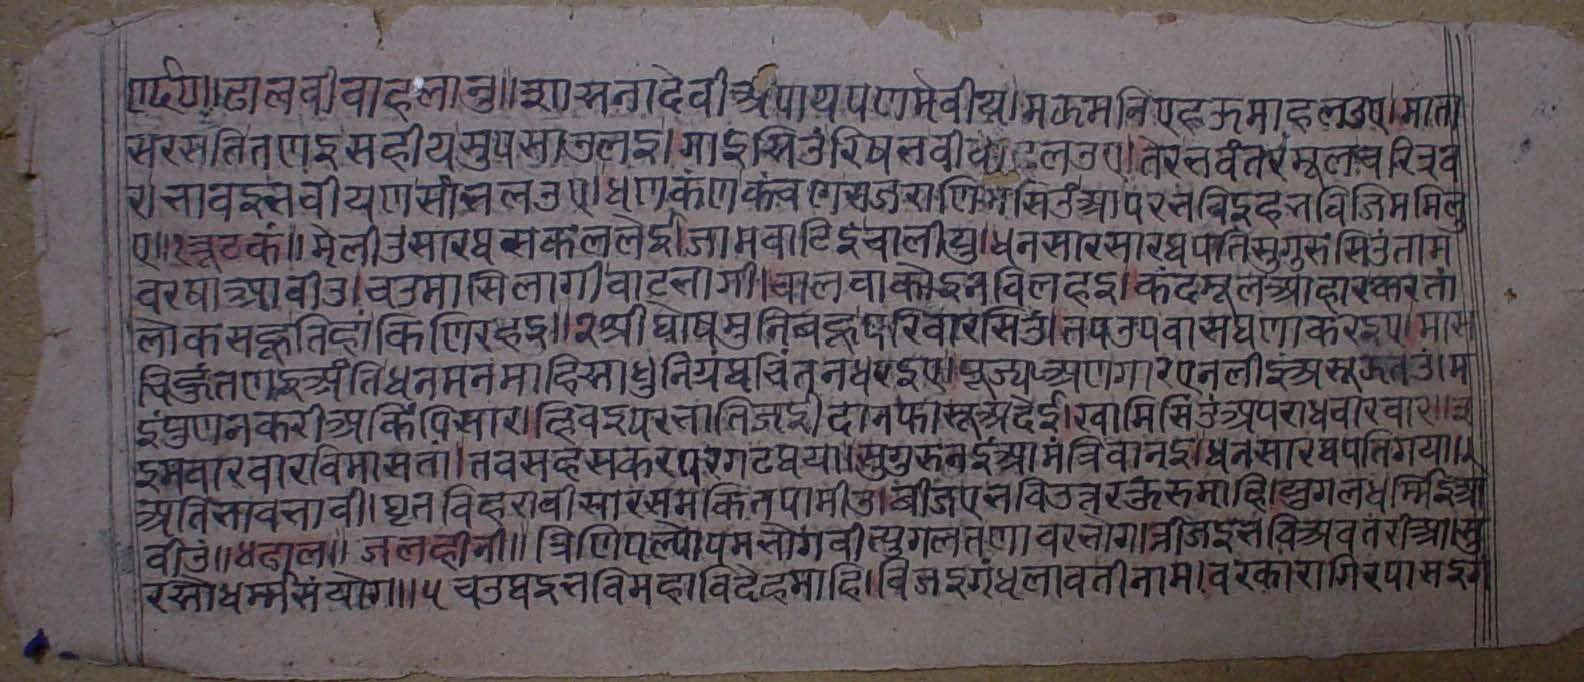 ए६०॥ ढाल वीवाहलानु॥ शासनादेवीअ पाय पणमेवीय। मझ मनि एह ऊमाहलउए। माता
सरसतितणइ सहीय सुपसाउलइ। गाइसिउं रिषभवीवाहलउए। तेर भवंतर मूल चरित्र व
र। भाव इ भवीयण सांभलउए। धण कण कंचण
ए॥१ त्रूटक॥ मेलीउ सारथ सकल लेई। जाम वाटिइं चालीयु। धनसार सारथपति सुगुरुसिउं ताम
वरषा आवीउ। चउमासि लागी वाट भागी। चालवा कोइ नवि लहइ। कंदमूल आहार करतां
लोक सहू तिहां किणि रहइ॥ २ श्रीघोषमुनि बहू परिवारसिउं। तप उपवास घणा करइए। मास
चिहुंतणइ अंति धन मनमाहि साधुनिय चिंतन धरइए। पूज्य अणगार ए न लीइं असूझतउं। म
इं पुण न करीअ किंपि सार। हिवइ परभाति जई दान फासूअ देई। खामिसिउं अपराध वारवार॥३
इम वारवार विमासता। तव सहसकर परगट थया। सुगुरुनइं आमंत्रिवानइ। धनसार सारथपति गया।
अति भाव भावी। घृत विहरावी सार समकित पामीउ। बीजए भवि उत्तरकुरुमाहि। युगलधर्मिइं आ
वीउं॥४ ढाल॥ जलहीनी॥ त्रिणि पल्योपम भोगवी युगलतणा वर भोग। त्रीजइ भवि अवतरीआ सु
र सोधर्म्म संयोग॥५ चउथइ भवि महाविदेहमाहि। विजइ गंधलावती नाम। वर